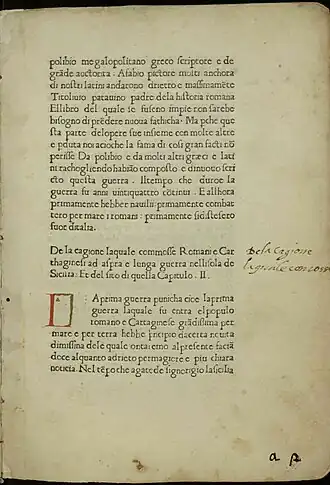 polibio megalopolitano greco scriptore e de
grãde auctorita . A fabio pictore molti anchora
di nostri latini andarono drieto e massimamẽte
Titoliuio patauino padre dela historia romana
El libro del quale se fuseno impie non sarebe
bisogno di prẽdere nuoua fathicha . Ma pche que
sta parte delopere sue insieme con molte altre
e pduta noi acioche la fama di cosi gran facti nõ
perisse Da polibio e da molti altri greci e lati
ni rachogliendo habião composto e dinuouo scri
cto questa guerra . Il tempo che duroe la
guerra fu anni uintiquattro cõtinui . E allhora
primamente hebber nauilii: primamente combat
tero per mare i romani: primamente si distesero
fuor ditalia.
De la cagione laquale commosse Romani e Car
thaginesi ad aspra e lunga guerra nellisola de
Sicilia: Et del sito di quella Capitulo . II .
De la Cagione
la quale com
L A prima guerra punicha cioe la prima
guerra laquale fu entra el populo
romano e Cartaginese grãdissima per
mare e per terra hebbe prĩcipio
di messina de le quale
doce alquanto adrieto per magiore e piu chiara
noticia . Nel tẽpo che agatocle signoregio la sicilia
a 2